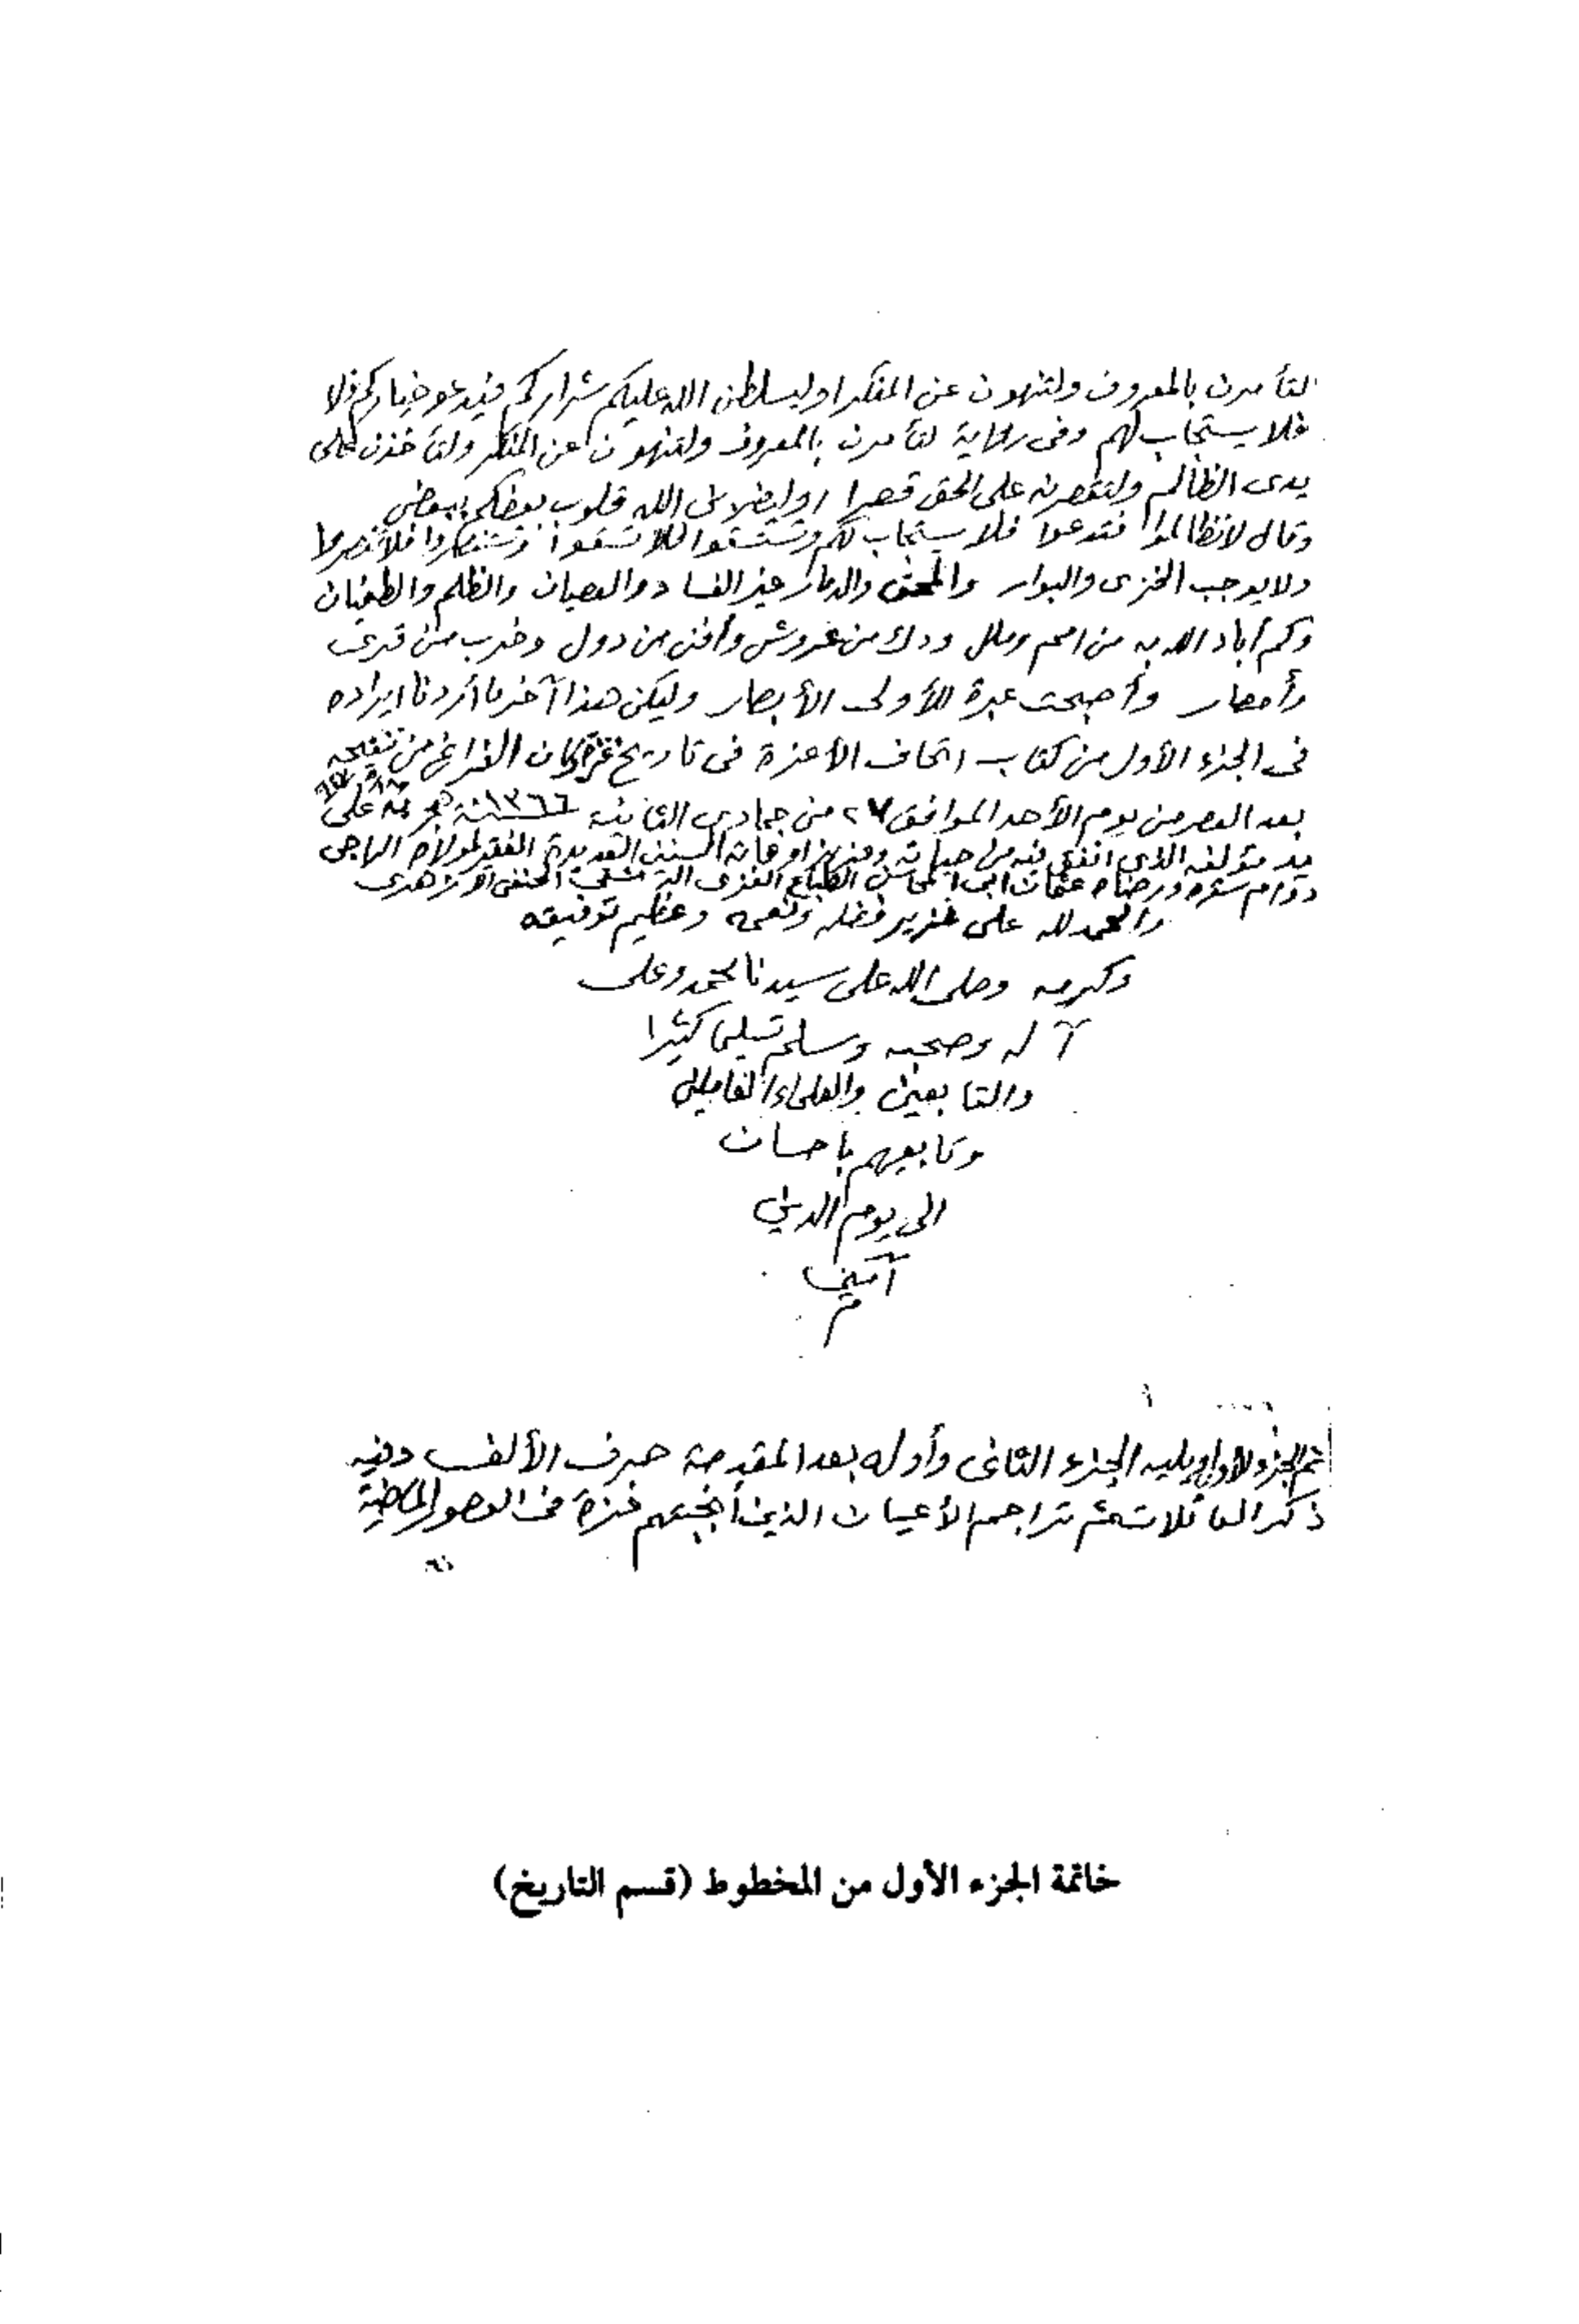 لتأمرن بالمعروف ولتنهون عن المنكر او ليسلطن الله عليكم شراركم فيدعو خياركم فلا
فلا يستجاب لهم وفى رواية لتأمرن بالمعروف ولتنهون عن المنكر ولتأخذن على
يدى الظالم ولتقصرنه على الحق قصرا او ليضربن الله قلوب بعضكم ببعض
وقال لا تظالموا فتدعوا فلا يستجاب لكم وتستسقوا فلا تسقوا وتستنصروا فلا تنصروا
ولا يوجب الخزى والبوار والمحق والدمار غير الفساد والعصيان والظلم والطغيان
وكم أباد الله به من امم وملل ودك من عروش وأفنى من دول وخرب من قرى
وأمصار وأصبحت عبرة لأولى الأبصار وليكن هذا آخر ما أردنا ايراده
فى الجزء الأول من كتاب اتحاف الأعزة فى تاريخ غزة وكان الفراغ من تنقيحه
بعد العصر من يوم الأحد الموافق ٢٧ من جمادى الثانية سنة ١٣٦٦ هجرية على
يد مؤلفه الذى انفق فيه من حياته ومن اوقاته السنين العديدة الفقير لمولاه الراجى
دوام ستره ورضاه عثمان ابى المحاسن الطباع الغزى الدمشقى الحنفى الأزهرى
والحمد لله على غزير فضله ونعمه وعظيم توفيقه
وكرمه وصلى الله على سيدنا محمد وعلى
آله وصحبه وسلم تسليما كثيرا
والتابعين والعلماء العاملين
وتابعيهم باحسان
الى يوم الدين
آمين
م
تم الجزء الأول ويليه الجزء الثانى وأوله بعد المقدمة حرف الألف وفيه
ذكر العائلات ثم تراجم الأعيان الذين أنجبتهم غزة فى العصور الماضية
خاتمة الجزء الأول من المخطوط (قسم التاريخ)